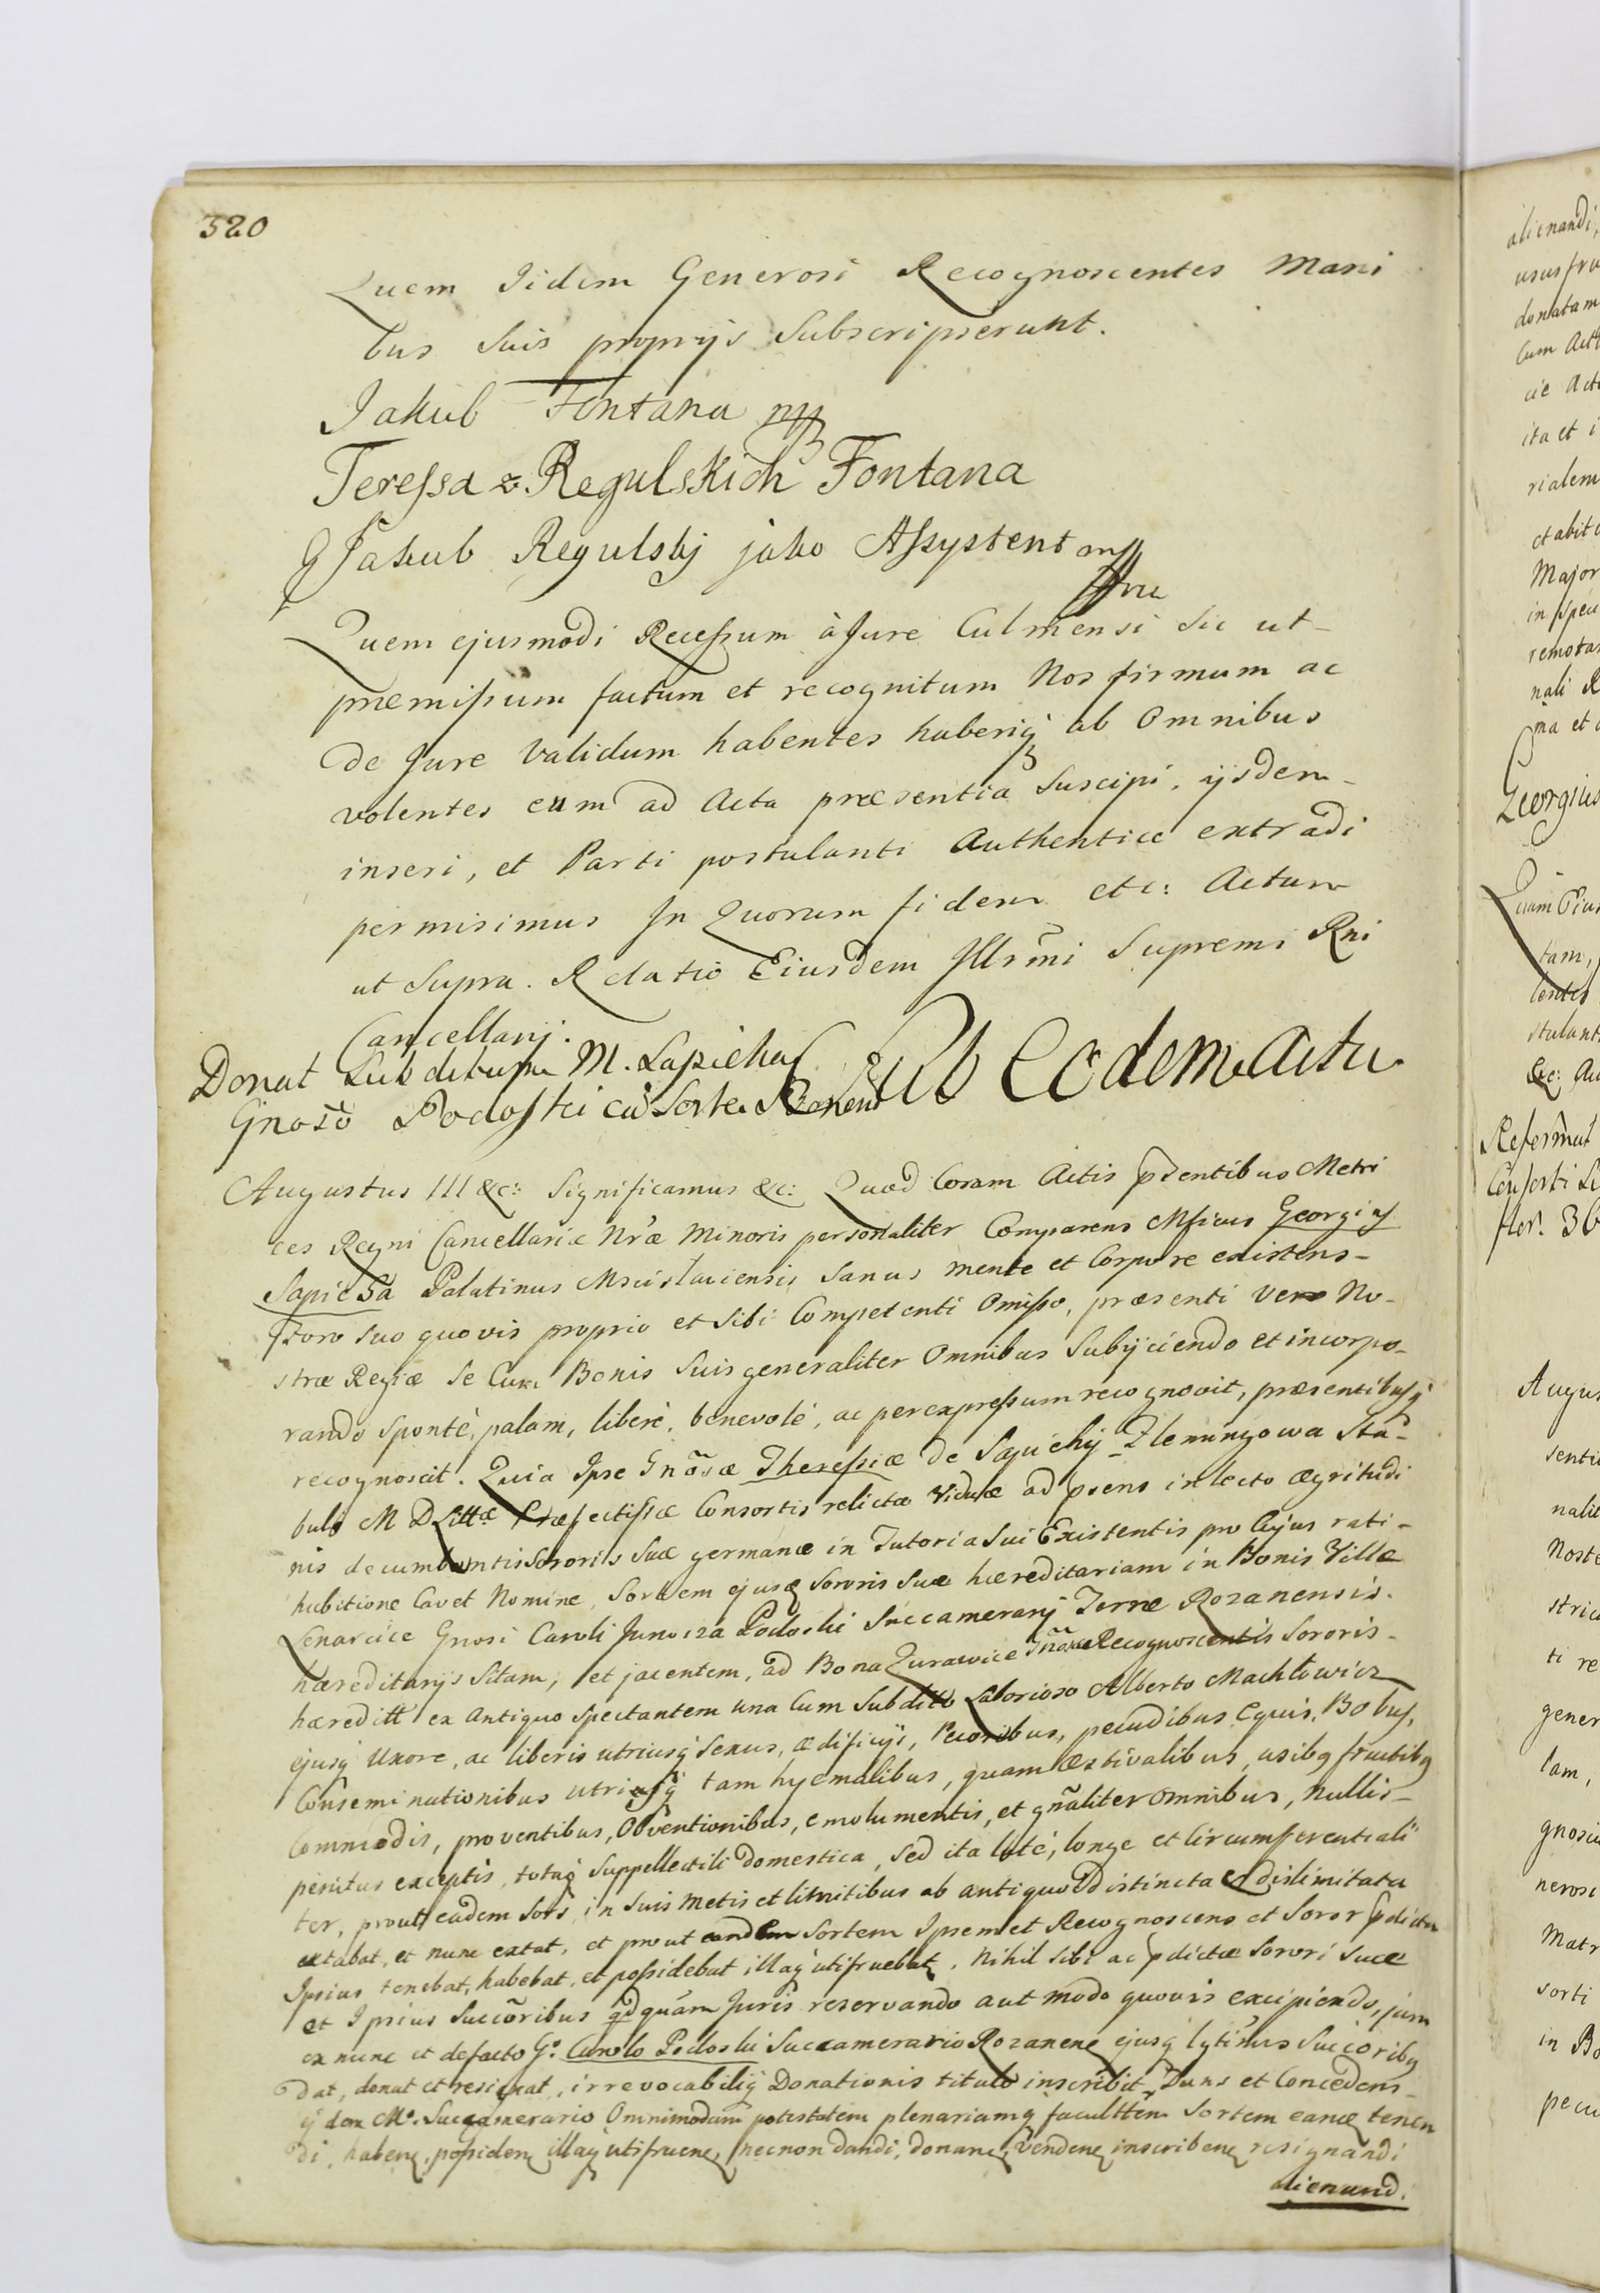 320
Quem Iidem Generosi Recognoscentes Mani
bus Suis proprijs Subscripserunt.
Jakub Fontana mp
Teressa z Regulskich Fontana
Jakub Regulskj jako Assystent mp
Quem ejusmodi Recessum à Jure Culmensi Sic ut
præmissum factum et recognitum Nos firmum ac
de Jure Validum habentes haberiq ab Omnibus
volentes eum ad Acta præsentia Suscipi, ijsdem
inseri, et Parti postulanti Authentice extradi
permisimus In Quorum fidem etc: Actum
ut Supra. Relatio Eiusdem Illsmi Supremi Rni
Cancellarij.
Donat Subditum M. Sapieha
Gnoso Podoski cū Sorte
Sub Eodem Actu
Augustus III &c: Significamus &c: Quod Coram Actis pdentibus Metri
ces Regni Cancellariæ Nræ Minoris personaliter Comparens Mficus Georgiy
Sapieha Palatinus Mscislaviensis Sanus mente et Corpore existens
Foro suo quovis proprio et Sibi Competenti Omisso, præsenti vero No
stræ Regiæ Se Cum Bonis Suis generaliter Omnibus Subijciendo et incorpo
rando sponte, palam, libere, benevolé, ac per expressum recognovit, præsentibusq
recognoscit. Quia Ipse Gnosæ Theressiæ de Sapiehij Flemingowa Sta
buli M D Littæ Præfectissæ Consortis relictæ Viduæ ad psens in lecto ægritudi
nis decumbentis Sororis Suæ germanæ in Tutoria Sui Existentis pro Cujus rati
habitione Cavet Nomine, Sortem ejusq Sororis Suæ hæreditariam in Bonis Villæ
Lenarcice Gnosi Caroli Junosza Podoski Succamerarij Terræ Rozanensis
hæreditarijs Sitam, et jacentem, ad Bona Zurawice Gnosæ Recognoscentis Sororis
hæreditt ex Antiquo Spectantem una Cum Subdito Laborioso Alberto Machłowicz
ejusq Uxore, ac liberis utriusq Sexus, ædificijs, Pecoribus, pecudibus Equis, Bobus,
Conseminationibus utriusq tam hyemalibus, quam æstivalibus, usibq fructibq
Commodis, proventibus, Obventionibus, emolumentis, et gnaliter omnibus, Nullis
penitus exceptis, totaq Suppellectili Domestica, Sed ita laté, longe et Circumferentiali
ter, prout eadem Sors in Suis Metis et limitibus ab antiquo distincta et dislimitata
extabat, et nunc extat, et prout eandem Sortem Ipsemet Recognoscens et Soror pdicta
Ipsius tenebat, habebat, et possidebat illaq utifruebat, Nihil Sibi ac pdictæ Sorori Suæ
et Ipsius Succoribus qdquam Juris reservando aut modo quovis excipiendo, jam
ex nunc et defacto Gº. Carolo Podoski Succamerario Rozanenę ejusq lgtimis Succoribq
dat, donat et resignat, irrevocabiliq Donationis titulo inscribit, Dans et Concedens
ijdem Mº. Succamerario Omnimodam potestatem plenariamq facultem Sortem eanę tenen
di, habenę, possidenę illaq utifruenę, necnon dandi, donanę, Vendenę inscribenę resignandi
alienand.